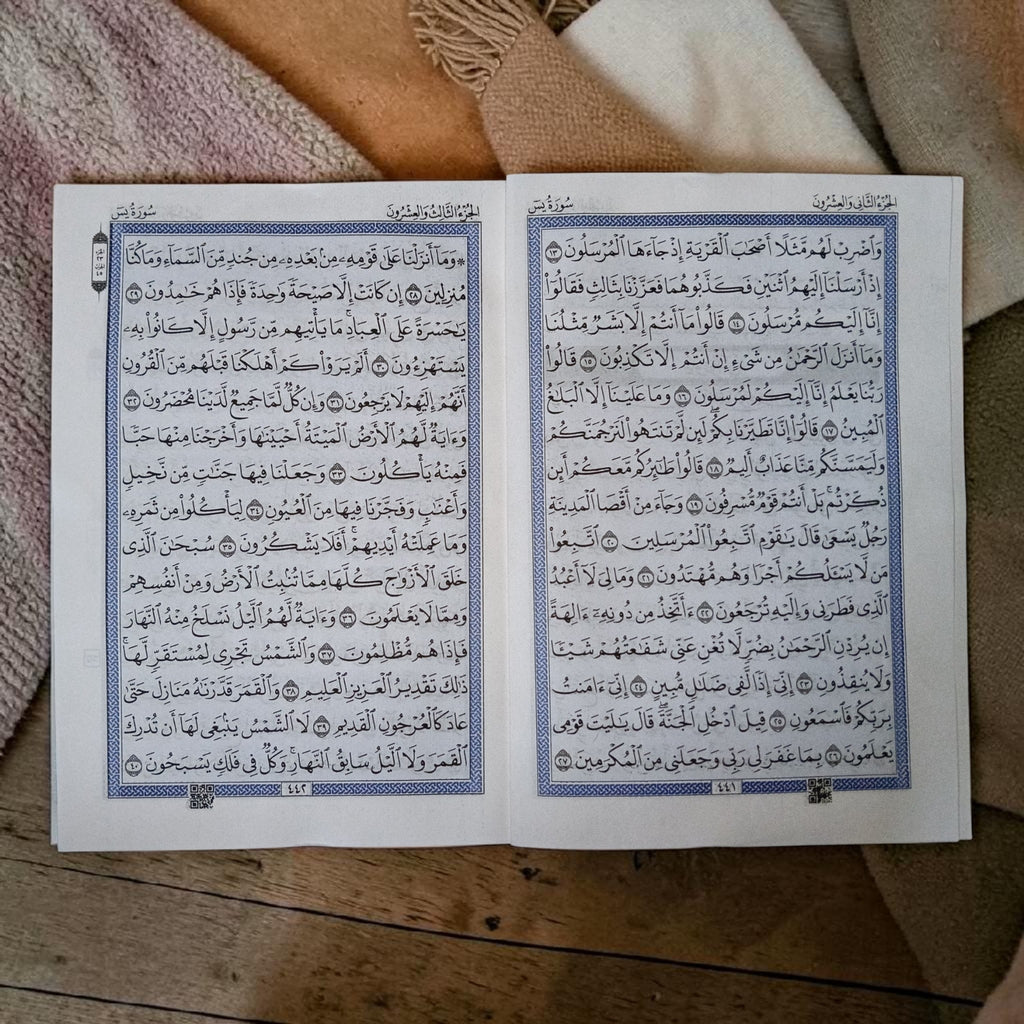 الجزء الثاني والعشرون
سورة يس
وَٱضْرِبْ لَهُم مَّثَلًا أَصْحَٰبَ ٱلْقَرْيَةِ إِذْ جَآءَهَا ٱلْمُرْسَلُونَ ١٣
إِذْ أَرْسَلْنَآ إِلَيْهِمُ ٱثْنَيْنِ فَكَذَّبُوهُمَا فَعَزَّزْنَا بِثَالِثٍ فَقَالُوٓا۟
إِنَّآ إِلَيْكُم مُّرْسَلُونَ ١٤ قَالُوا۟ مَآ أَنتُمْ إِلَّا بَشَرٌ مِّثْلُنَا
وَمَآ أَنزَلَ ٱلرَّحْمَٰنُ مِن شَىْءٍ إِنْ أَنتُمْ إِلَّا تَكْذِبُونَ ١٥ قَالُوا۟
رَبُّنَا يَعْلَمُ إِنَّآ إِلَيْكُمْ لَمُرْسَلُونَ ١٦ وَمَا عَلَيْنَآ إِلَّا ٱلْبَلَٰغُ
ٱلْمُبِينُ ١٧ قَالُوٓا۟ إِنَّا تَطَيَّرْنَا بِكُمْ ۖ لَئِن لَّمْ تَنتَهُوا۟ لَنَرْجُمَنَّكُمْ
وَلَيَمَسَّنَّكُم مِّنَّا عَذَابٌ أَلِيمٌ ١٨ قَالُوا۟ طَٰٓئِرُكُم مَّعَكُمْ ۚ أَئِن
ذُكِّرْتُم ۚ بَلْ أَنتُمْ قَوْمٌ مُّسْرِفُونَ ١٩ وَجَآءَ مِنْ أَقْصَا ٱلْمَدِينَةِ
رَجُلٌ يَسْعَىٰ قَالَ يَٰقَوْمِ ٱتَّبِعُوا۟ ٱلْمُرْسَلِينَ ٢٠ ٱتَّبِعُوا۟
مَن لَّا يَسْـَٔلُكُمْ أَجْرًا وَهُم مُّهْتَدُونَ ٢١ وَمَا لِىَ لَآ أَعْبُدُ
ٱلَّذِى فَطَرَنِى وَإِلَيْهِ تُرْجَعُونَ ٢٢ ءَأَتَّخِذُ مِن دُونِهِۦٓ ءَالِهَةً
إِن يُرِدْنِ ٱلرَّحْمَٰنُ بِضُرٍّ لَّا تُغْنِ عَنِّى شَفَٰعَتُهُمْ شَيْـًٔا
وَلَا يُنقِذُونِ ٢٣ إِنِّىٓ إِذًا لَّفِى ضَلَٰلٍ مُّبِينٍ ٢٤ إِنِّىٓ ءَامَنتُ
بِرَبِّكُمْ فَٱسْمَعُونِ ٢٥ قِيلَ ٱدْخُلِ ٱلْجَنَّةَ ۖ قَالَ يَٰلَيْتَ قَوْمِى
يَعْلَمُونَ ٢٦ بِمَا غَفَرَ لِى رَبِّى وَجَعَلَنِى مِنَ ٱلْمُكْرَمِينَ ٢٧
٤٤١
الجزء الثالث والعشرون
سورة يس
* وَمَآ أَنزَلْنَا عَلَىٰ قَوْمِهِۦ مِنۢ بَعْدِهِۦ مِن جُندٍ مِّنَ ٱلسَّمَآءِ وَمَا كُنَّا
مُنزِلِينَ ٢٨ إِن كَانَتْ إِلَّا صَيْحَةً وَٰحِدَةً فَإِذَا هُمْ خَٰمِدُونَ ٢٩
يَٰحَسْرَةً عَلَى ٱلْعِبَادِ ۚ مَا يَأْتِيهِم مِّن رَّسُولٍ إِلَّا كَانُوا۟ بِهِۦ
يَسْتَهْزِءُونَ ٣٠ أَلَمْ يَرَوْا۟ كَمْ أَهْلَكْنَا قَبْلَهُم مِّنَ ٱلْقُرُونِ
أَنَّهُمْ إِلَيْهِمْ لَا يَرْجِعُونَ ٣١ وَإِن كُلٌّ لَّمَّا جَمِيعٌ لَّدَيْنَا مُحْضَرُونَ ٣٢
وَءَايَةٌ لَّهُمُ ٱلْأَرْضُ ٱلْمَيْتَةُ أَحْيَيْنَٰهَا وَأَخْرَجْنَا مِنْهَا حَبًّا
فَمِنْهُ يَأْكُلُونَ ٣٣ وَجَعَلْنَا فِيهَا جَنَّٰتٍ مِّن نَّخِيلٍ
وَأَعْنَٰبٍ وَفَجَّرْنَا فِيهَا مِنَ ٱلْعُيُونِ ٣٤ لِيَأْكُلُوا۟ مِن ثَمَرِهِۦ
وَمَا عَمِلَتْهُ أَيْدِيهِمْ ۖ أَفَلَا يَشْكُرُونَ ٣٥ سُبْحَٰنَ ٱلَّذِى
خَلَقَ ٱلْأَزْوَٰجَ كُلَّهَا مِمَّا تُنۢبِتُ ٱلْأَرْضُ وَمِنْ أَنفُسِهِمْ
وَمِمَّا لَا يَعْلَمُونَ ٣٦ وَءَايَةٌ لَّهُمُ ٱلَّيْلُ نَسْلَخُ مِنْهُ ٱلنَّهَارَ
فَإِذَا هُم مُّظْلِمُونَ ٣٧ وَٱلشَّمْسُ تَجْرِى لِمُسْتَقَرٍّ لَّهَا ۚ
ذَٰلِكَ تَقْدِيرُ ٱلْعَزِيزِ ٱلْعَلِيمِ ٣٨ وَٱلْقَمَرَ قَدَّرْنَٰهُ مَنَازِلَ حَتَّىٰ
عَادَ كَٱلْعُرْجُونِ ٱلْقَدِيمِ ٣٩ لَا ٱلشَّمْسُ يَنۢبَغِى لَهَآ أَن تُدْرِكَ
ٱلْقَمَرَ وَلَا ٱلَّيْلُ سَابِقُ ٱلنَّهَارِ ۚ وَكُلٌّ فِى فَلَكٍ يَسْبَحُونَ ٤٠
٤٤٢